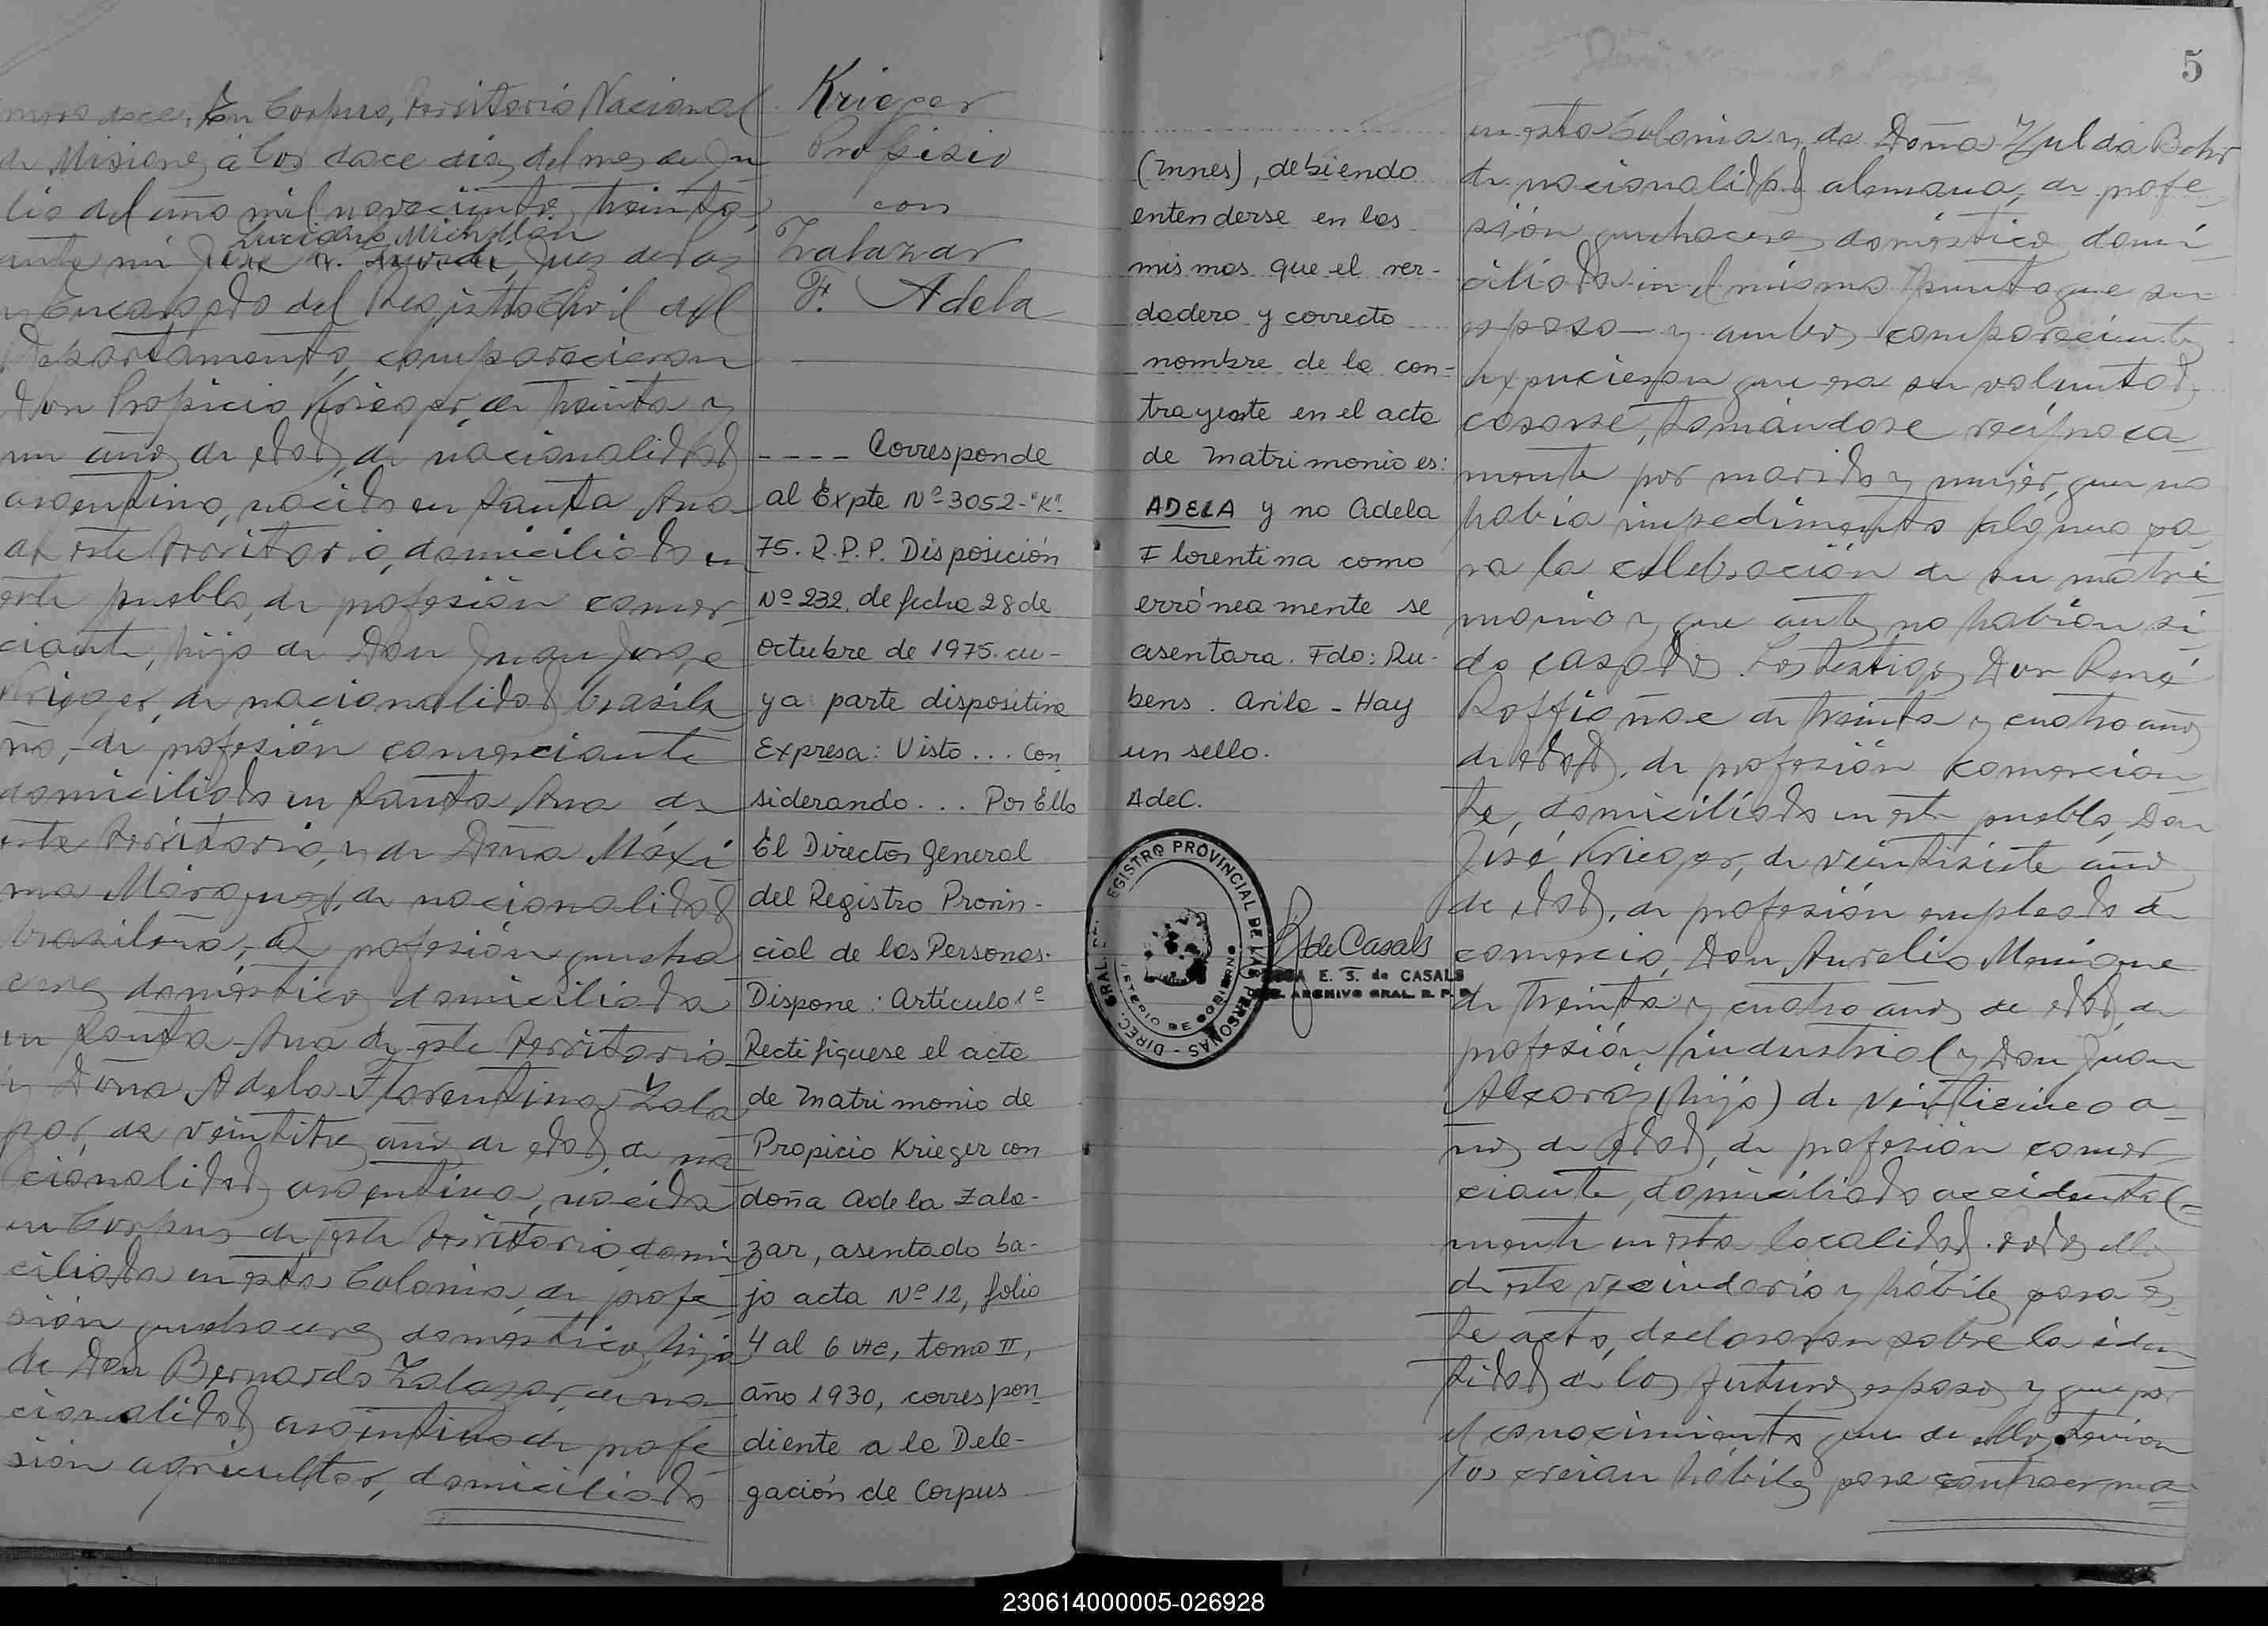 doce, En Corpus, Territorio Nacional
de Misiones, a los doce dias del mes de Ju
lio del año mil novecientos treinta,
Luciano Michellón
ante mi Juez de Paz
y Encargado del Registro Civil del
Departamento, comparecieron
Don Propicio Krieger, de treinta y
un años de edad, de nacionalidad
argentino, nacido en Santa Ana
de este territorio, domiciliado en
este pueblo, de profesión comer-
ciante, hijo de Don Juan José
Krieger, de nacionalidad brasile
ño, de profesión comerciante
domiciliado en Santa Ana de
este territorio, y de Doña Máxi
ma Márquez, de nacionalidad
brasileña, de profesión queha
ceres domésticos domiciliada
en Santa Ana de este territorio
y Doña Adela Florentina Zala
zar, de veintitres años de edad, de na
cionalidad argentina, nacida
en Corpus de este territorio domi
ciliada en esta Colonia, de profe
sión quehaceres domésticos, hija
de Don Bernardo Zalazar, de na
cionalidad argentino de profe
sión agricultor, domiciliado
Krieger
Propisio
con
Zalazar
F. Adela
---- Corresponde
al Expte Nº 3052-"K"
75. R.P.P. Disposición
Nº 232. de fecha 28 de
octubre de 1975. cu-
ya parte dispositiva
Expresa: Visto... Con
siderando... Por Ello
El Director General
del Registro Provin-
cial de las Personas.
Dispone: Artículo 1º
Rectifiquese el acta
de Matrimonio de
Propicio Krieger con
doña Adela Zala-
zar, asentado ba-
jo acta Nº 12, folio
4 al 6 vto, tomo II,
año 1930, correspon
diente a la Dele-
gación de Corpus
(Mnes), debiendo
entenderse en los
mismos que el ver-
dadero y correcto
nombre de la con-
trayente en el acta
de Matrimonio es:
ADELA y no Adela
Florentina como
erróneamente se
asentara. Fdo: Ru-
bens. Avila - Hay
un sello.
AdeC.
REGISTRO PROVINCIAL DE LAS PERSONAS - DIREC. GRAL.
MINISTERIO DE GOBIERNO
AdeCasals
E. S. de CASALS
ARCHIVO GRAL. R. P. P.
5
en esta Colonia y de Doña Hulda Behr
de nacionalidad alemana, de profe
sión quehaceres domésticos domi
ciliada en el mismo punto que su
esposo y ambos comparecientes
expucieron que era su voluntad
casarse, tomándose recíproca
mente por marido y mujer, que no
había impedimento alguno pa
ra la celebración de su matri
monio y que antes no habían si
do casados. Los testigos Don René
de treinta y cuatro años
de edad, de profesión comercian
te, domiciliado en este pueblo, Don
José Krieger, de veintisiete años
de edad, de profesión empleado de
comercio, Don Aurelio
de treinta y cuatro años de edad, de
profesión industrial y Don Juan
Alcaráz (hijo) de veinticinco a
ños de edad, de profesión comer
ciante, domiciliado accidental
mente en esta localidad. Todos ellos
de este vecindario y hábiles para es
te acto, declararon sobre la iden
tidad de los futuros esposos y que por
el conocimiento que de ellos tenian
los creian hábiles para contraer ma
230614000005-026928